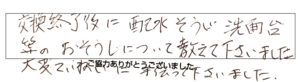 交換終了後に配水そうじ洗面台
等のおそうじについて教えて下さいました
ご協力ありがとうございました
大変ていねいに 下さいました。